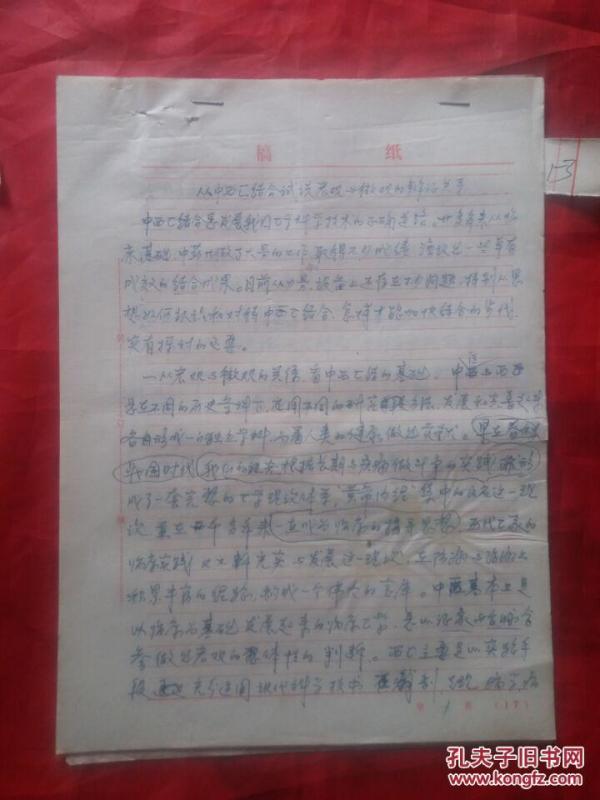 稿 纸
从中西医结合试谈宏观与微观的辩证关系
中西医结合是发展我国医学科学技术的正确道路。廿多年来从临
床、基础、中药也做了大量的工作,取得不少成绩,涌现出一些卓有
成效的结合成果。目前从力量、设备上还存在不少问题,特别从思
想如何认识和对待中西医结合,怎样才能加快结合的步伐,
实有探讨的必要。
一从宏观与微观的关系,看中西医结合的基础。中医与西医
是在不同的历史条件下,应用不同的研究方法,发展和完善
各自形成一的独立学科,为着人类的健康做出贡献。早在春秋
战国时代我们的祖先根据长期与疾病做斗争的实践
成了一套完整的医学理论体系,黄帝内经集中的反应这一理
论,直至廿千多年来一直作为临床的指导思想。历代医家的
临床实践又不断充实与发展这一理论,在防病与治病上
积累丰富的经验,形成一个伟大的宝库。中医基本上是
以临床为基础发展起来的临床医学,是以
参做出宏观的整体性的判断。西医主要是以实验手
段 充分运用现代科学技术
第 1 页 (17)
153
孔夫子旧书网
www.kongfz.com